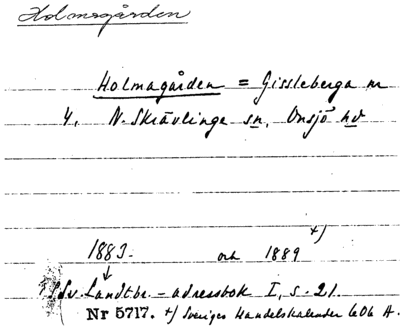 Holmagården
Holmagården = Gissleberga nr
4. N. Skrävlinge sn, Onsjö hd
+)
1883. och 1889
↓
Sv. Landtbr. - adressbok I, s. 21.
Nr 5717. +) Sveriges Handelskalender 606 A.